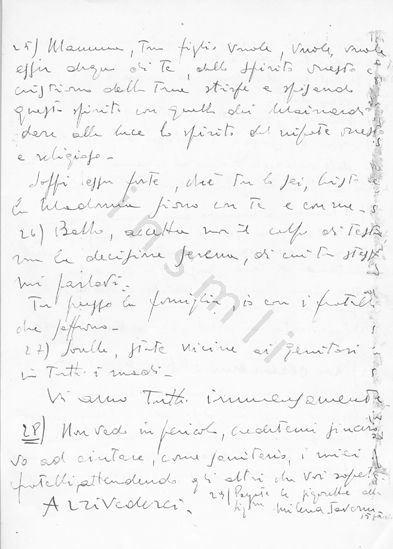 25) Mamma, tuo figlio vuole, vuole, vuole
esser degno di te, dello spirito onesto e
cristiano della tua stirpe e sposando
questo spirito con quello dei
dare alla luce lo spirito del nipote onesto
e religioso -
Sappi esser forte, chè tu lo sei, Cristo e
la Madonna siano con te e con me -
26) Babbo, accetta non il colpo di testa
ma la decisione serena, di cui tu stesso
mi parlavi.
Tu presso la famiglia, io con i fratelli
che soffrono -
27) Sorelle, state vicine ai genitori
in tutti i modi -
Vi amo tutti immensamente
28) Non vado in pericolo, credetemi
vo ad aiutare, come i miei
fratelli, attendendo gli altri che voi sapete.
Arrivederci.
29) le alla
Milena
ingmli